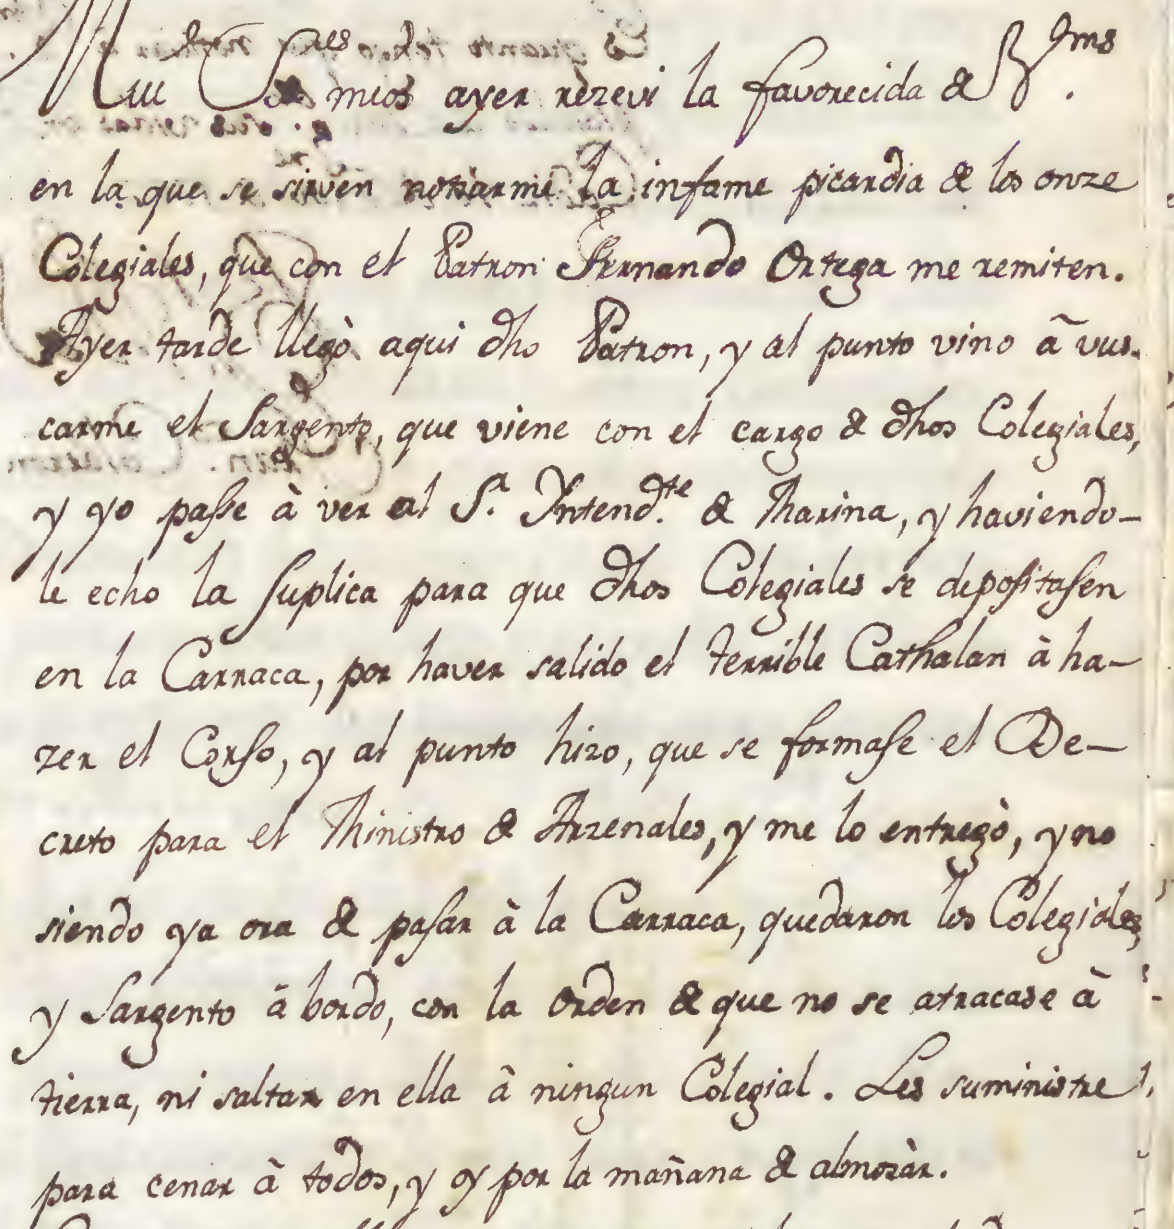 Mui Sres mios ayer rezevi la favorecida de Vms.
en la que se sirven notiziarme la infame picardia de los onze
Colegiales, que con el Patron Fernando Ortega me remiten.
Ayer tarde llegò aqui dho Patron, y al punto vino â vus-
carme el Sargento, que viene con el cargo de dhos Colegiales,
y yo passe à ver al Sr. Yntendte. de Marina, y haviendo-
le echo la suplica para que dhos Colegiales se depositasen
en la Carraca, por haver salido el terrible Cathalan à ha-
zer el Corso, y al punto hizo, que se formase el De-
creto para el Ministro de Arzenales, y me lo entregò, y no
siendo ya ora de pasar à la Carraca, quedaron los Colegiales,
y Sargento â bordo, con la orden de que no se atracase à
tierra, ni saltar en ella â ningun Colegial. Les suministre
para cenar à todos, y oy por la mañana de almorzàr.